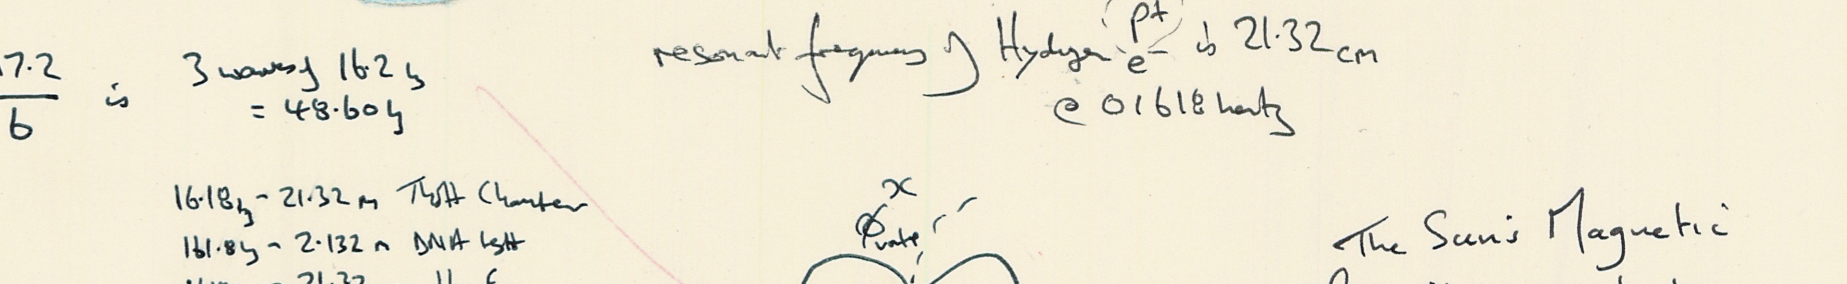 7.2
6
is
3 waves of 16.2 hz
= 48.60 hz
resonant frequency of Hydrogen p+ e- is 21.32 cm
@ 01618 hertz
16.18 hz - 21.32 m Chamber
161.8 hz - 2.132 m DNA
21.32
x
Φ
The Sun's Magnetic